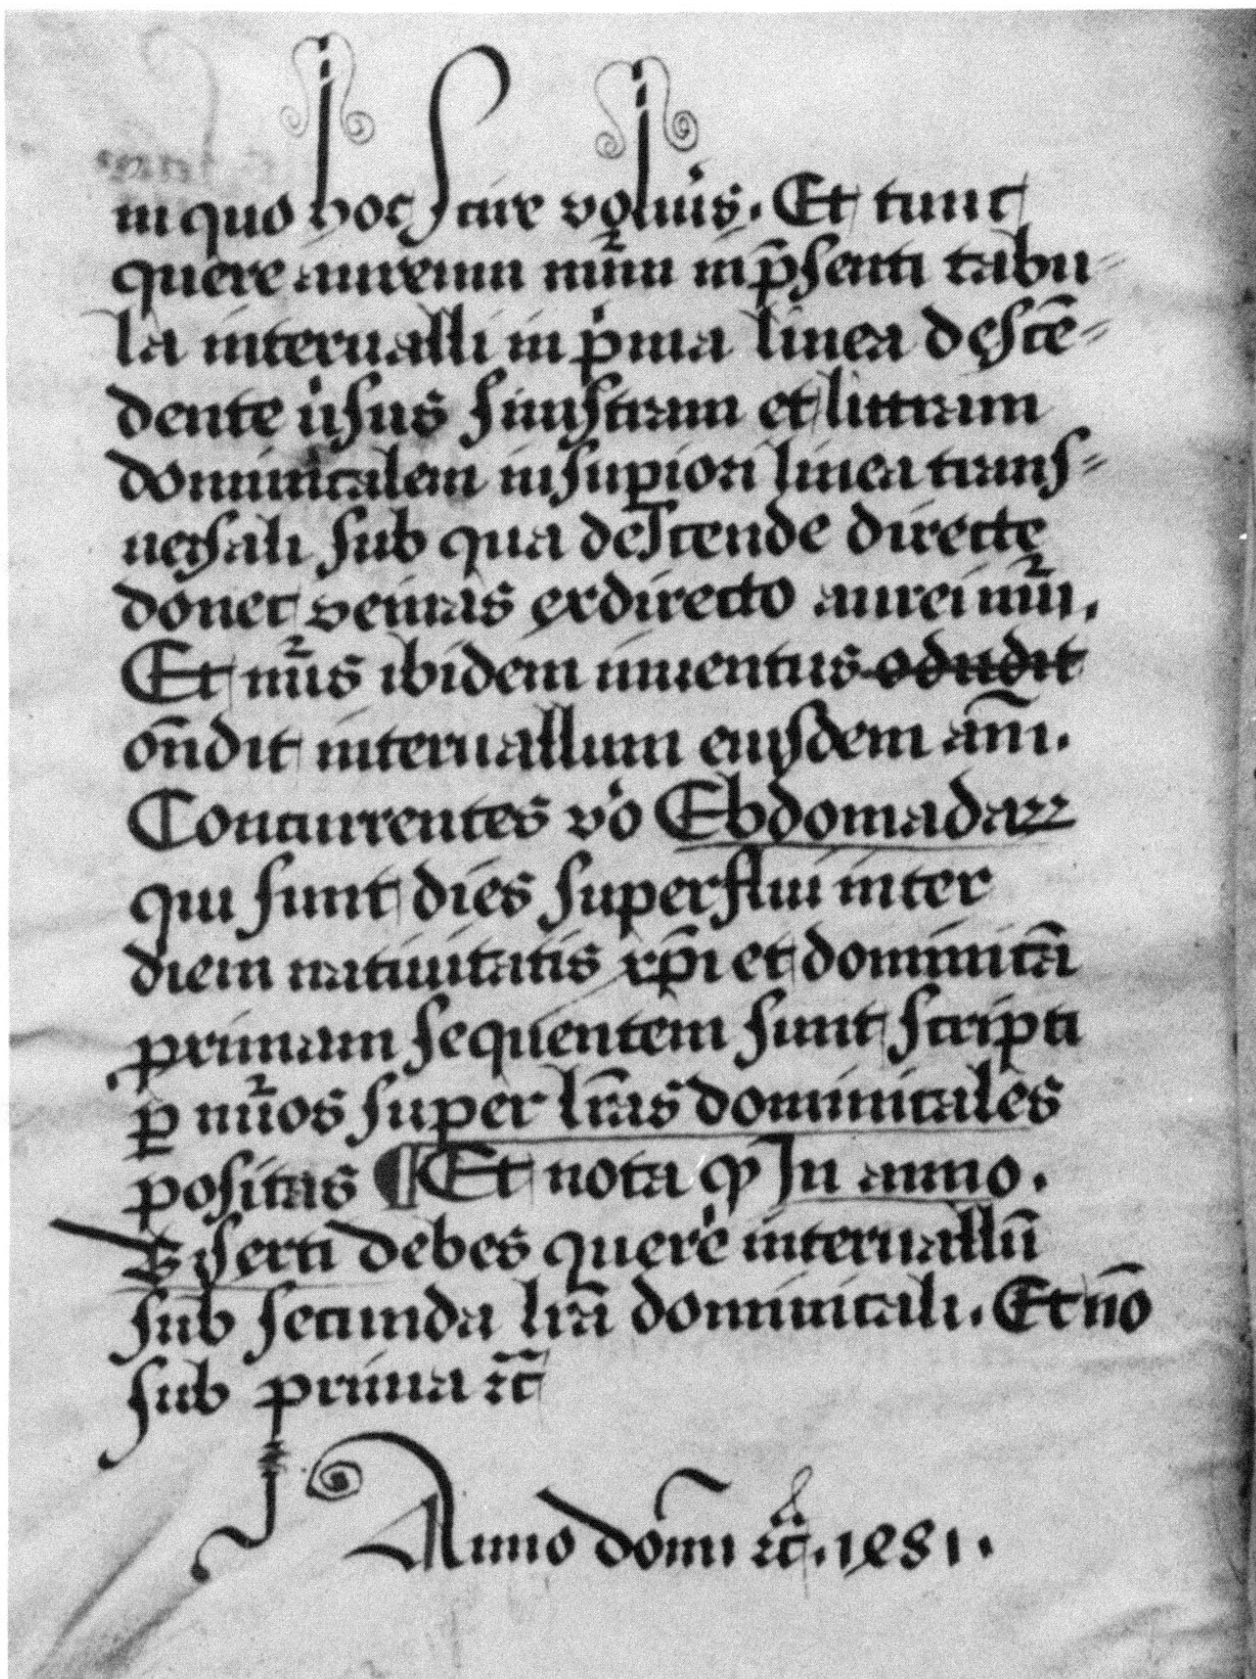 in quo hoc scire volũis. Et tunc
quere aureum nũm in p̃senti tabu=
la interualli in pͥma linea descẽ=
dente ủsus sinistram et litteram
dominicalem in supiori linea trans=
uersali sub qua descende directe
donec venias ex directo aurei nũi.
Et nũs ibidem inuentus
oñdit interuallum eiusdem añi.
Concurrentes vͦo Ebdomadaꝝ
qui sunt dies superflui inter
diem natiuitatis xp̃i et dominicã
primam sequentem sunt scripti
ꝑ nũos super lr̃as dominicales
positas ¶ Et nota ꝙ In anno.
Bisexti debes querere interuallũ
sub secunda lr̃a dominicali. Et nõ
sub prima ⁊c̃
Anno domi ⁊c̃. 1481.